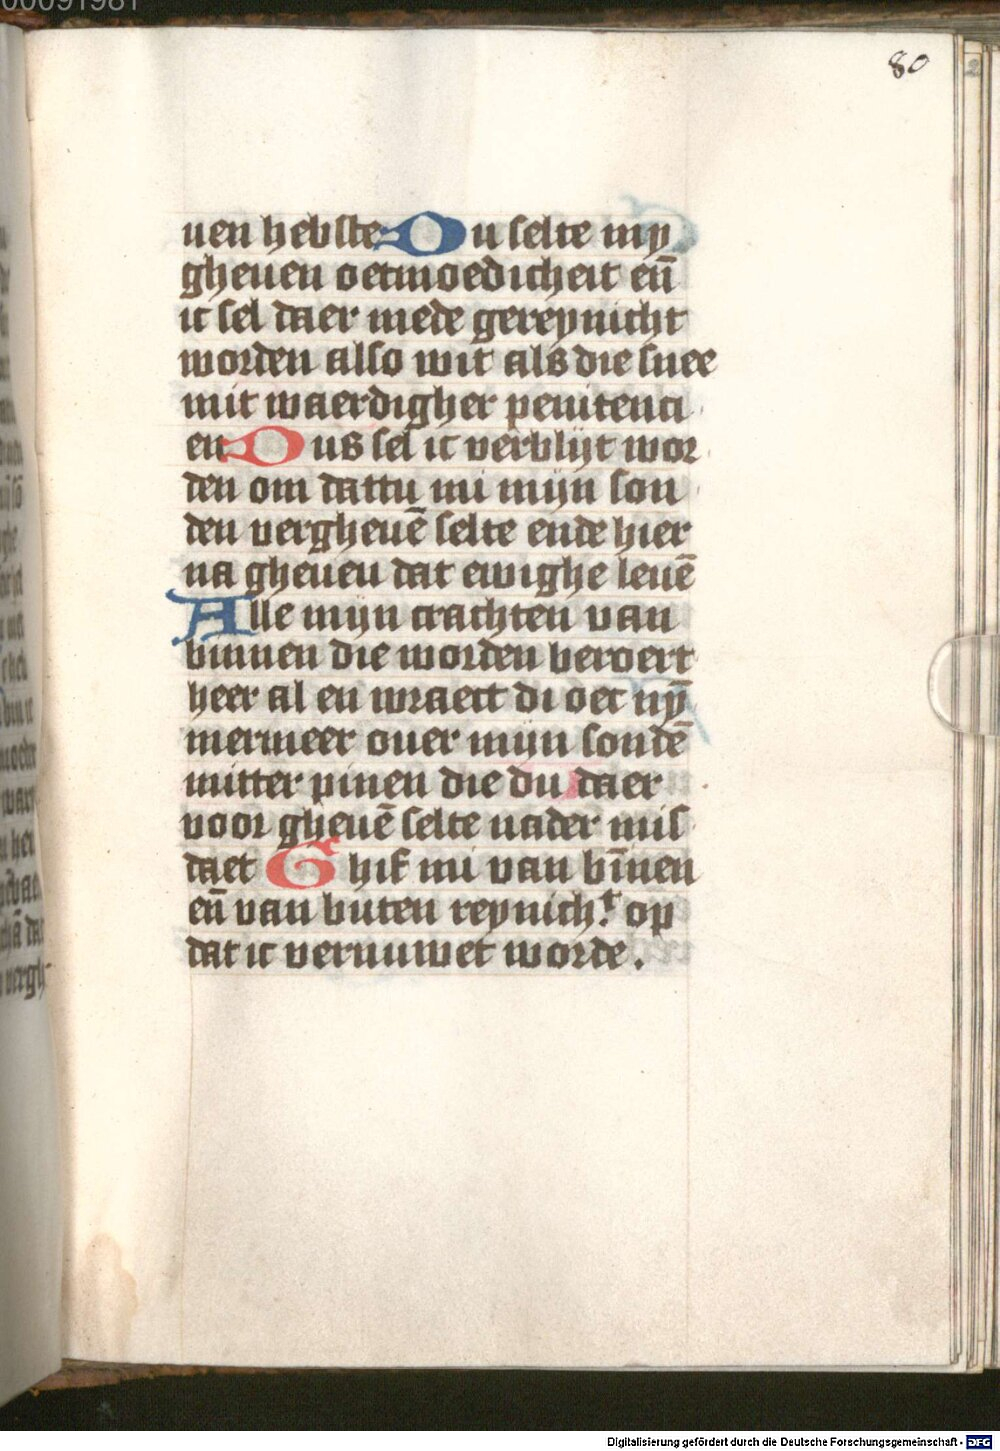 00091981
80
uen hebste Du selte my
gheuen oetmoedicheit eñ
ic sel daer mede gereynicht
worden also wit als die snee
mit waerdigher penitenci
en Dus sel ic verblijt wor
den om dattu mi mijn son
den vergheuē selte ende hier
na gheuen dat ewighe leuē
Alle mijn crachten van
binnen die worden beroert
heer al en wraect di oec nȳ
mermeer ouer mijn sondē
mitter pinen die du daer
voor gheuē selte nader mis
daet Ghif mi van bīnen
eñ van buten reynich.t op
dat ic vernuwet worde.
Digitalisierung gefördert durch die Deutsche Forschungsgemeinschaft - DFG